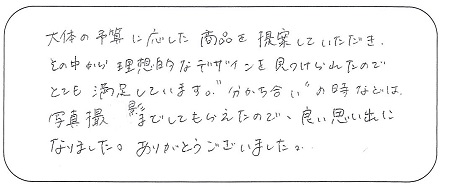 大体の予算に応じた商品を提案していただき、
その中から理想的なデザインを見つけられたので
とても満足しています。"分かち合い"の時などは、
写真撮影までしてもらえたので、良い思い出に
なりました。ありがとうございました。